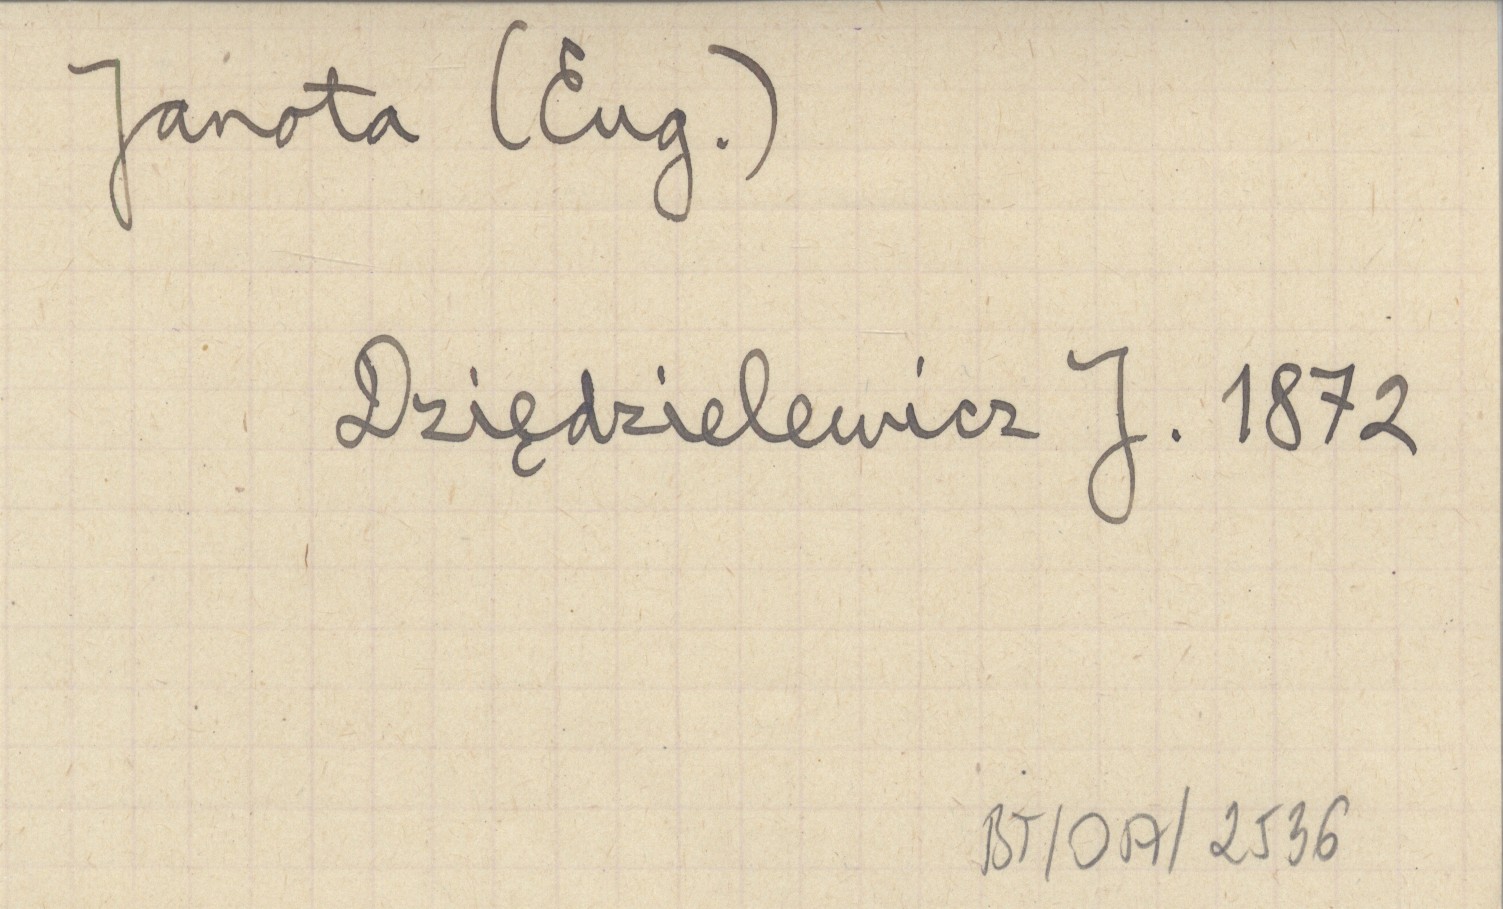 Janota (Eug.)
Dziędzielewicz J. 1872
BT/OA/2536